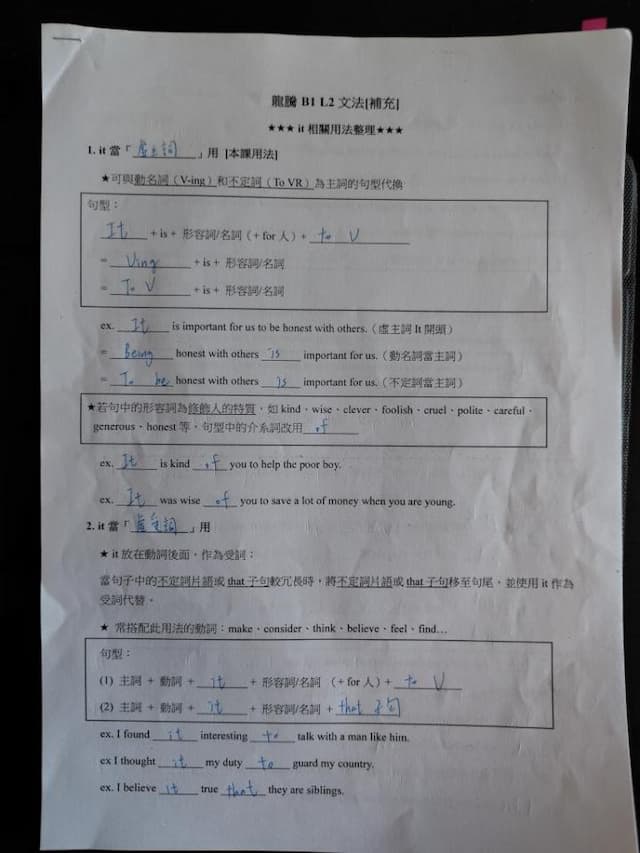 龍騰 B1 L2 文法[補充]
★★★ it 相關用法整理★★★
1. it 當「虛主詞」用 [本課用法]
★可與動名詞（V-ing）和不定詞（To VR）為主詞的句型代換
句型：
It + is + 形容詞/名詞（+ for 人）+ to V
= Ving + is + 形容詞/名詞
= To V + is + 形容詞/名詞
ex. It is important for us to be honest with others.（虛主詞 It 開頭）
= Being honest with others is important for us.（動名詞當主詞）
= To be honest with others is important for us.（不定詞當主詞）
★若句中的形容詞為修飾人的特質，如 kind、wise、clever、foolish、cruel、polite、careful、
generous、honest 等，句型中的介系詞改用 of
ex. It is kind of you to help the poor boy.
ex. It was wise of you to save a lot of money when you are young.
2. it 當「虛受詞」用
★ it 放在動詞後面，作為受詞：
當句子中的不定詞片語或 that 子句較冗長時，將不定詞片語或 that 子句移至句尾，並使用 it 作為
受詞代替。
★ 常搭配此用法的動詞：make、consider、think、believe、feel、find…
句型：
(1) 主詞 + 動詞 + it + 形容詞/名詞 （+ for 人）+ to V
(2) 主詞 + 動詞 + it + 形容詞/名詞 + that 子句
ex. I found it interesting to talk with a man like him.
ex I thought it my duty to guard my country.
ex. I believe it true that they are siblings.